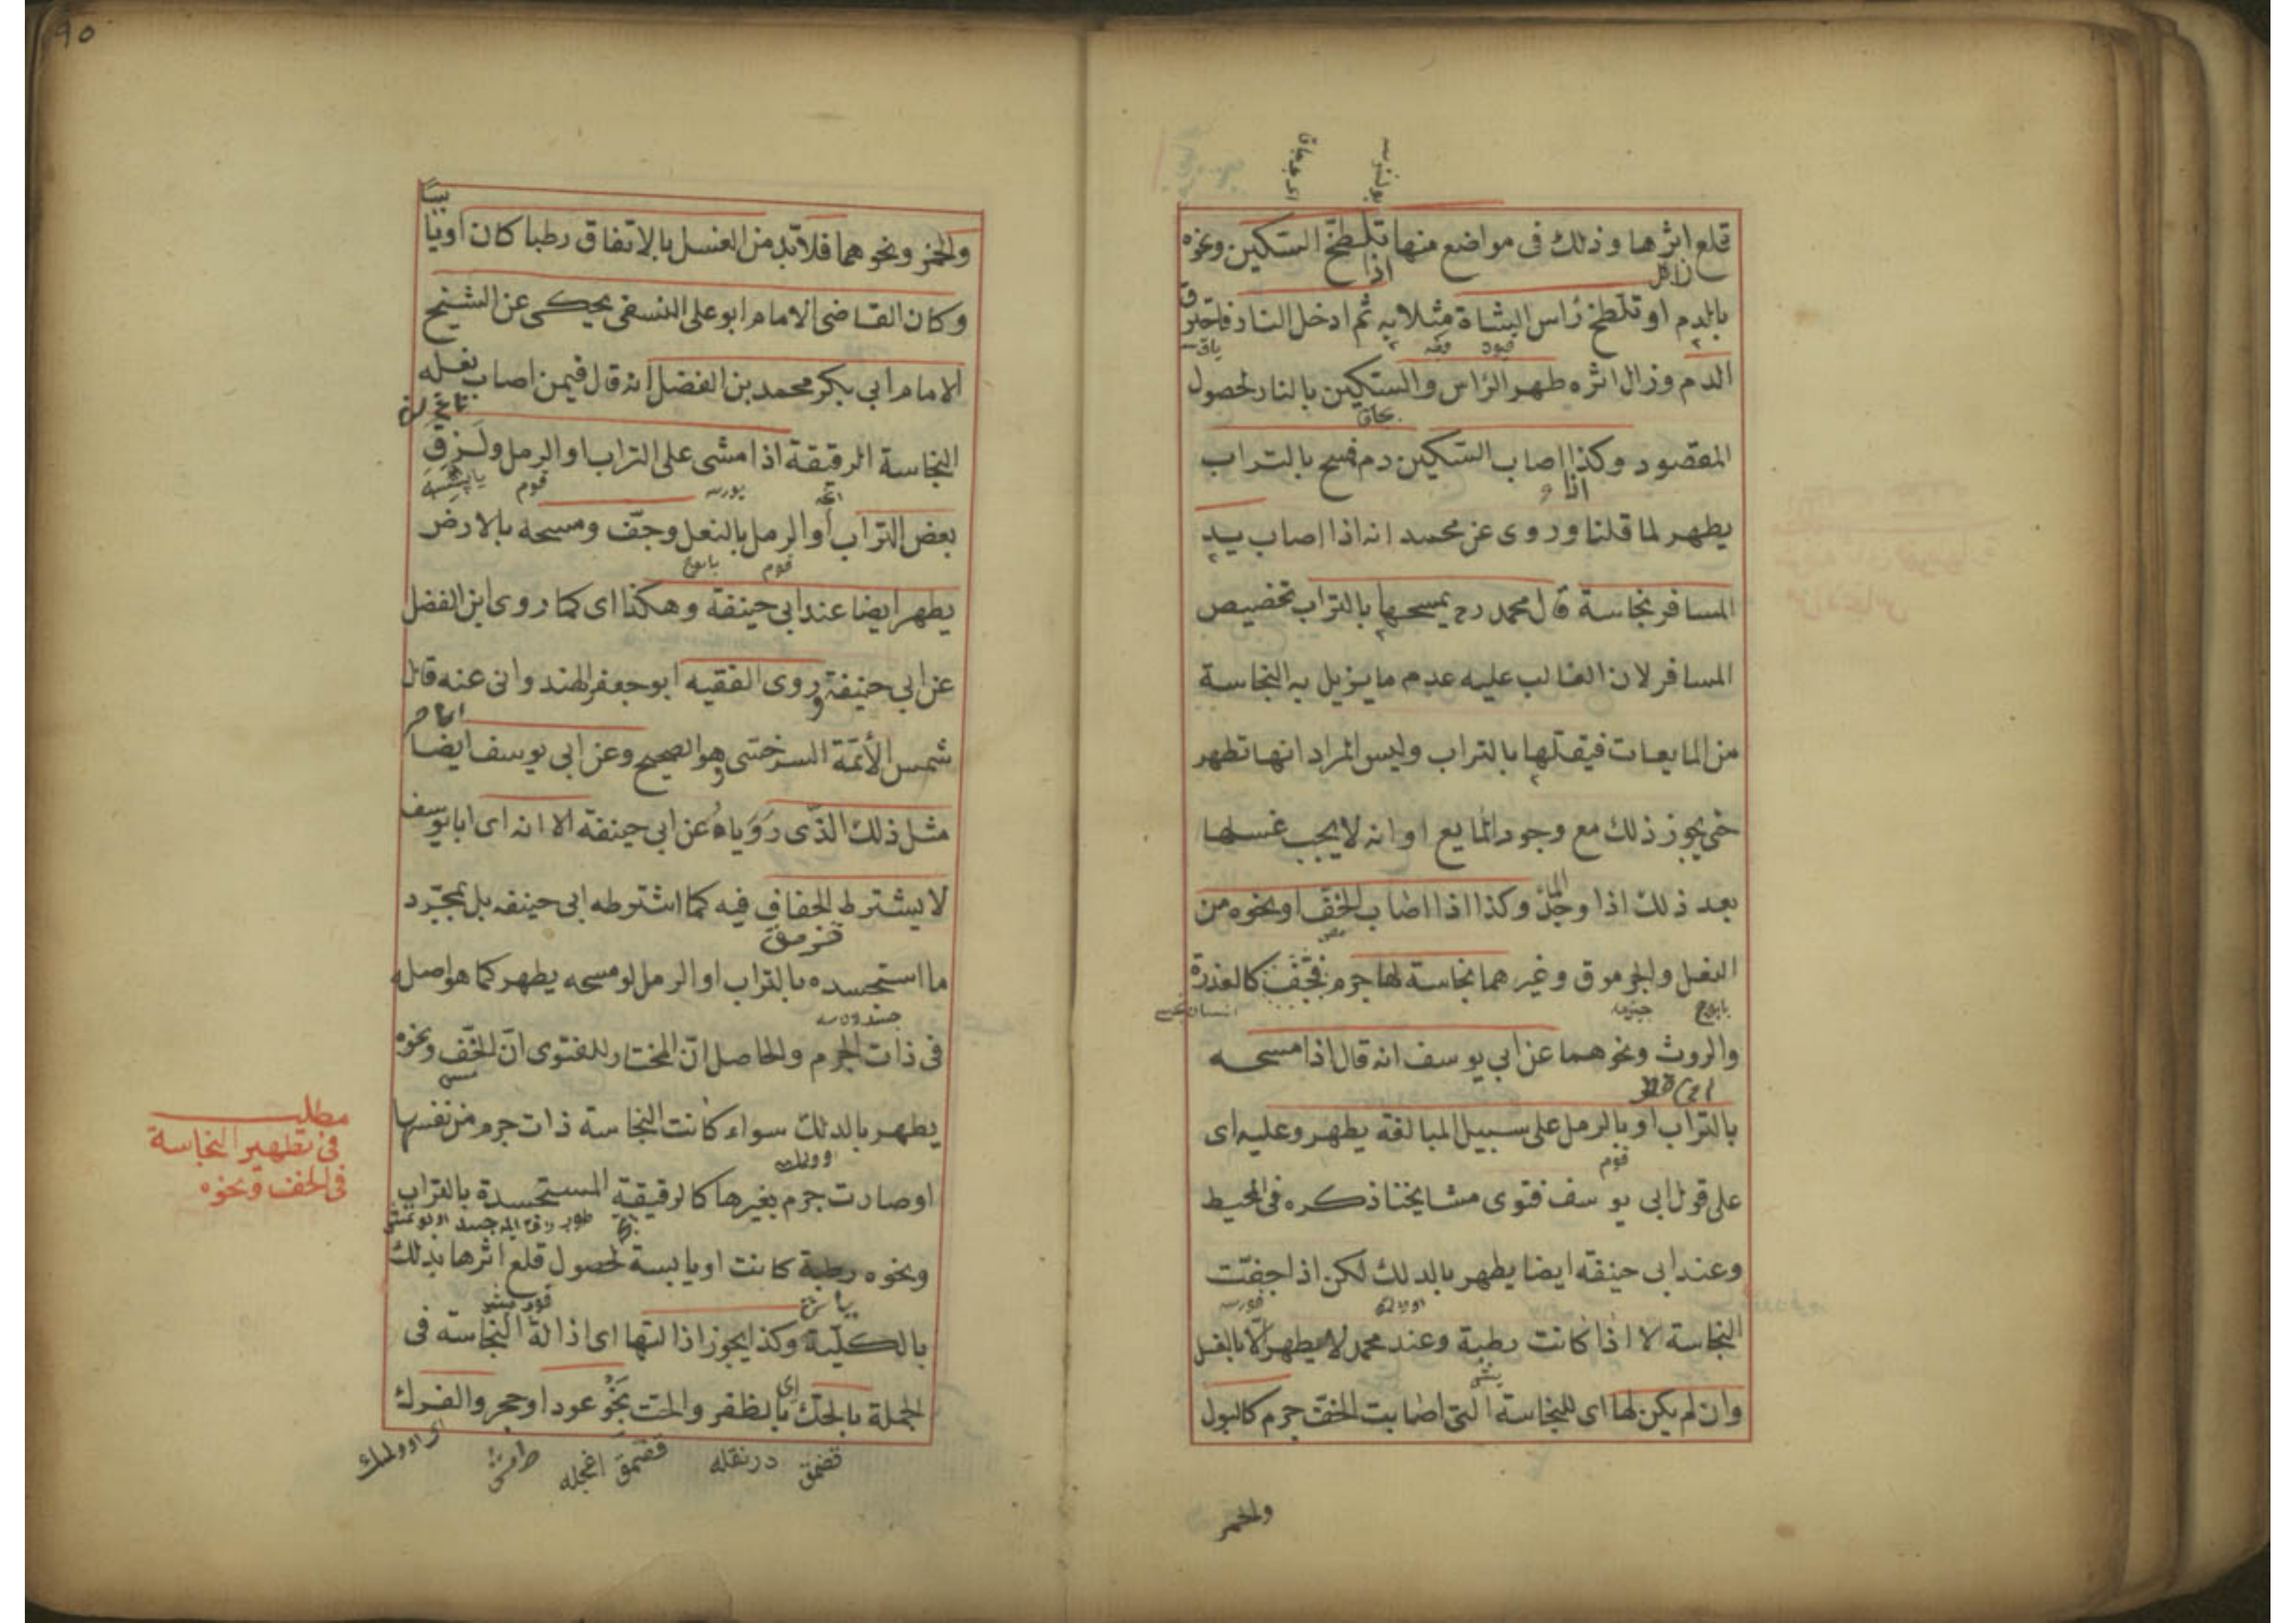 قلع اثرها وذلك فى مواضع منها تلطخ السكين ونحوه
بالدم او تلطخ راس الشاة مثلا به ثم ادخل النار فاحترق
الدم وزال اثره طهر الراس والسكين بالنار لحصول
المقصود وكذا اذا اصاب السكين دم فمسح بالتراب
يطهر لما قلنا وروى عن محمد انه اذا اصاب يد
المسافر نجاسة قال محمد رح يمسحها بالتراب تخصيص
المسافر لان الغالب عليه عدم ما يزيل به النجاسة
من المايعات فيقللها بالتراب وليس المراد انها تطهر
حتى يجوز ذلك مع وجود المايع او انه لا يجب غسلها
بعد ذلك اذا وجد الماء وكذا اذا اصاب الخف او نحوه من
النعل والجرموق وغيرهما نجاسة لها جرم فتجفف كالعذرة
والروث ونحوهما عن ابي يوسف انه قال اذا مسحه
بالتراب او بالرمل على سبيل المبالغة يطهر وعليه اى
على قول ابى يوسف فتوى مشايخنا ذكره فى المحيط
وعند ابى حنيفة ايضا يطهر بالدلك لكن اذا جفت
النجاسة لا اذا كانت رطبة وعند محمد لا يطهر الا بالغسل
وان لم يكن لها اى للنجاسة التى اصابت الخف جرم كالبول
والخمر
٩٥
والخمر ونحوهما فلا بد من الغسل بالاتفاق رطبا كان او يابسا
وكان القاضى الامام ابو على النسفى يحكى عن الشيخ
الامام ابي بكر محمد بن الفضل انه قال فيمن اصاب نعله
النجاسة الرقيقة اذا مشى على التراب او الرمل ولزق
بعض التراب او الرمل بالنعل وجف ومسحه بالارض
يطهر ايضا عند ابي حنيفة وهكذا اى كما روى ابن الفضل
عن ابي حنيفة وروى الفقيه ابو جعفر الهندوانى عنه قال
شمس الأئمة السرخسى وهو الصحيح وعن ابى يوسف ايضا
مثل ذلك الذى روياه عن ابى حنيفة الا انه اى ابا يوسف
لا يشترط الجفاف فيه كما اشترطه ابى حنيفه بل بمجرد
ما استجسده بالتراب او الرمل لو مسحه يطهر كما هو اصله
فى ذات الجرم والحاصل ان المختار للفتوى ان الخف ونحوه
يطهر بالدلك سواء كانت النجاسة ذات جرم من نفسها
او صارت جرم بغيرها كالرقيقة المستجسدة بالتراب
ونحوه رطبة كانت او يابسة لحصول قلع اثرها بذلك
بالكلية وكذا يجوز اذالتها اى اذالة النجاسة فى
الجملة بالحك اى بالظفر والحت بنحو عود او حجر والفرك
مطلب
فى تطهير النجاسة
فى الخف ونحوه